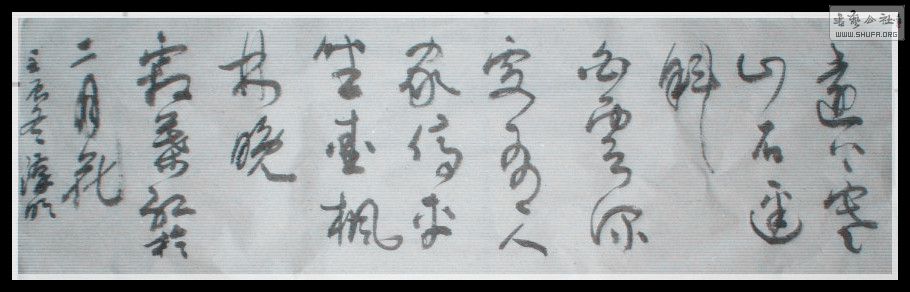 遠上寒
山石逕
斜
白雲深
處有人
家停車
坐愛楓
林晚
霜葉紅於
二月花
壬辰冬
書藝公社
WWW.SHUFA.ORG